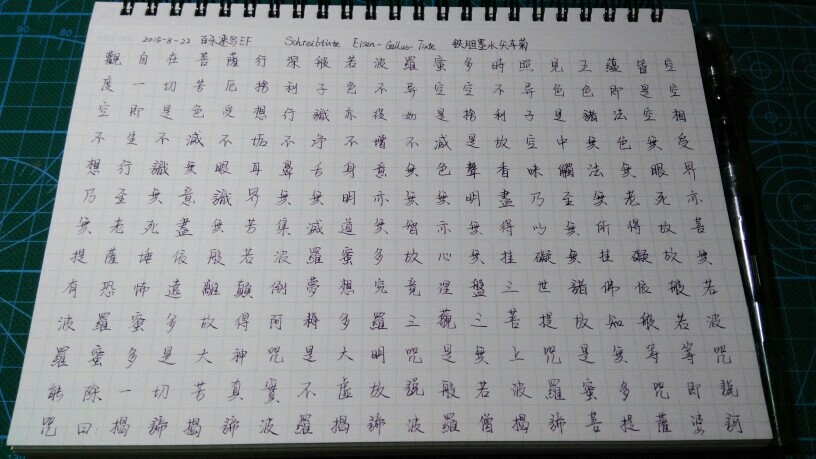 2015-8-22 百乐速写EF Schreibtinte Eisen-Gallus-Tinte 铁胆墨水矢车菊
觀自在菩薩行深般若波羅蜜多時照見五蘊皆空
度一切苦厄捨利子色不异空空不异色色即是空
空即是色受想行識亦復如是捨利子是諸法空相
不生不滅不垢不淨不增不滅是故空中無色無受
想行識無眼耳鼻舌身意無色聲香味觸法無眼界
乃至無意識界無無明亦無無明盡乃至無老死亦
無老死盡無苦集滅道無智亦無得以無所得故菩
提薩埵依般若波羅蜜多故心無挂礙無挂礙故無
有恐怖遠離顛倒夢想究竟涅盤三世諸佛依般若
波羅蜜多故得阿耨多羅三藐三菩提故知般若波
羅蜜多是大神咒是大明咒是無上咒是無等等咒
能除一切苦真實不虛故說般若波羅蜜多咒即說
咒曰:揭諦揭諦波羅揭諦波羅僧揭諦菩提薩婆訶